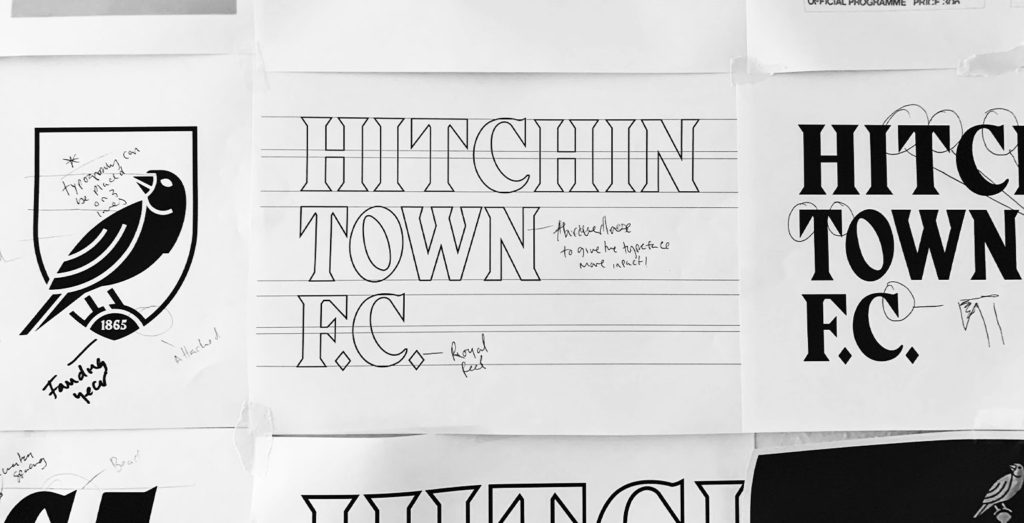 OFFICIAL PROGRAMME PRICE 30p
*
typography can
be placed
on 3
lines
1865
Founding
year
Attached
HITCHIN
TOWN
F.C.
to give the typeface
more impact!
Royal
feel
HITC
TOWN
F.C.
Spacing
HITCI